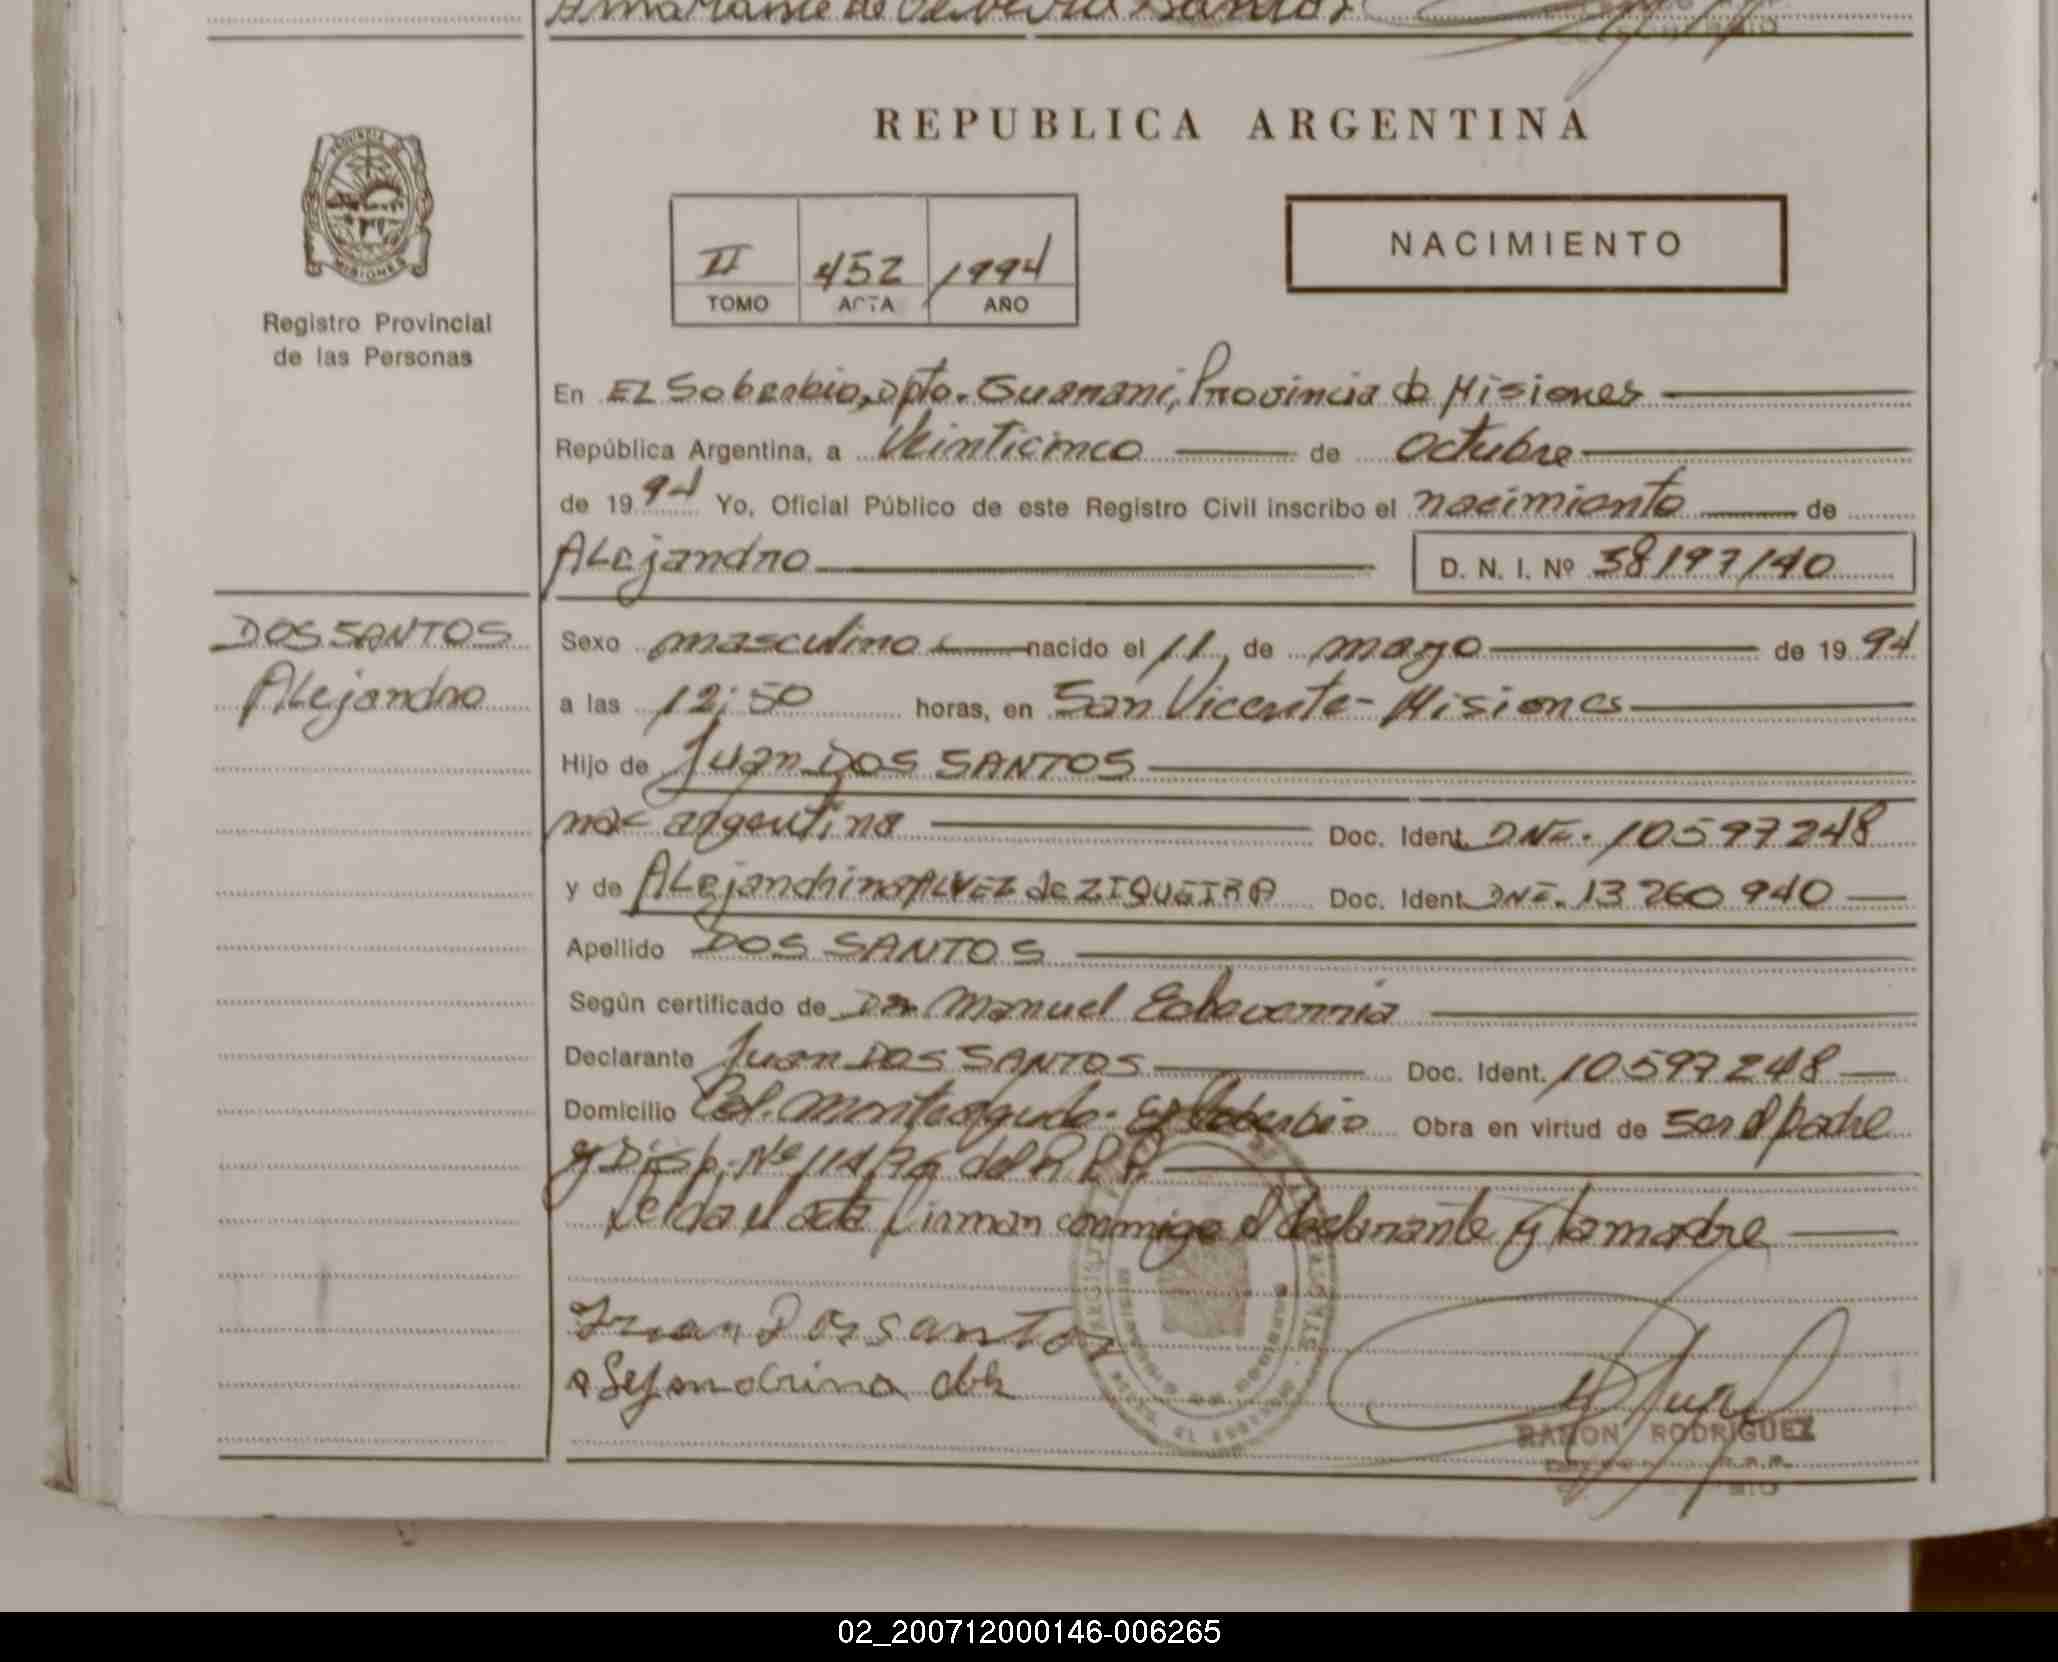 Amarante de Oliveira Santos
REPUBLICA ARGENTINA
PROVINCIA DE
MISIONES
Registro Provincial
de las Personas
II 452 1994
TOMO ACTA AÑO
NACIMIENTO
En EL Soberbio, Dpto. Guarani, Provincia de Misiones
República Argentina, a Veinticinco de octubre
de 1994 Yo, Oficial Público de este Registro Civil inscribo el nacimiento de
Alejandro D. N. I. Nº 38197140
DOS SANTOS
Alejandro
Sexo masculino nacido el 11 de mayo de 1994
a las 12:50 horas, en San Vicente - Misiones
Hijo de Juan DOS SANTOS
nac argentina Doc. Ident. DNI. 10597248
y de ALejandrina ALVEZ de ZIQUEIRA Doc. Ident. DNI. 13260940
Apellido DOS SANTOS
Según certificado de Dr Manuel Echavarria
Declarante Juan DOS SANTOS Doc. Ident. 10597248
Domicilio Col. Monteagudo - El Soberbio Obra en virtud de ser el padre
y Disp. Nº 114/76 del R.P.P.
Leida el acta firman conmigo el declarante y la madre
Juan Dos santos
RAMON RODRIGUEZ
02_200712000146-006265